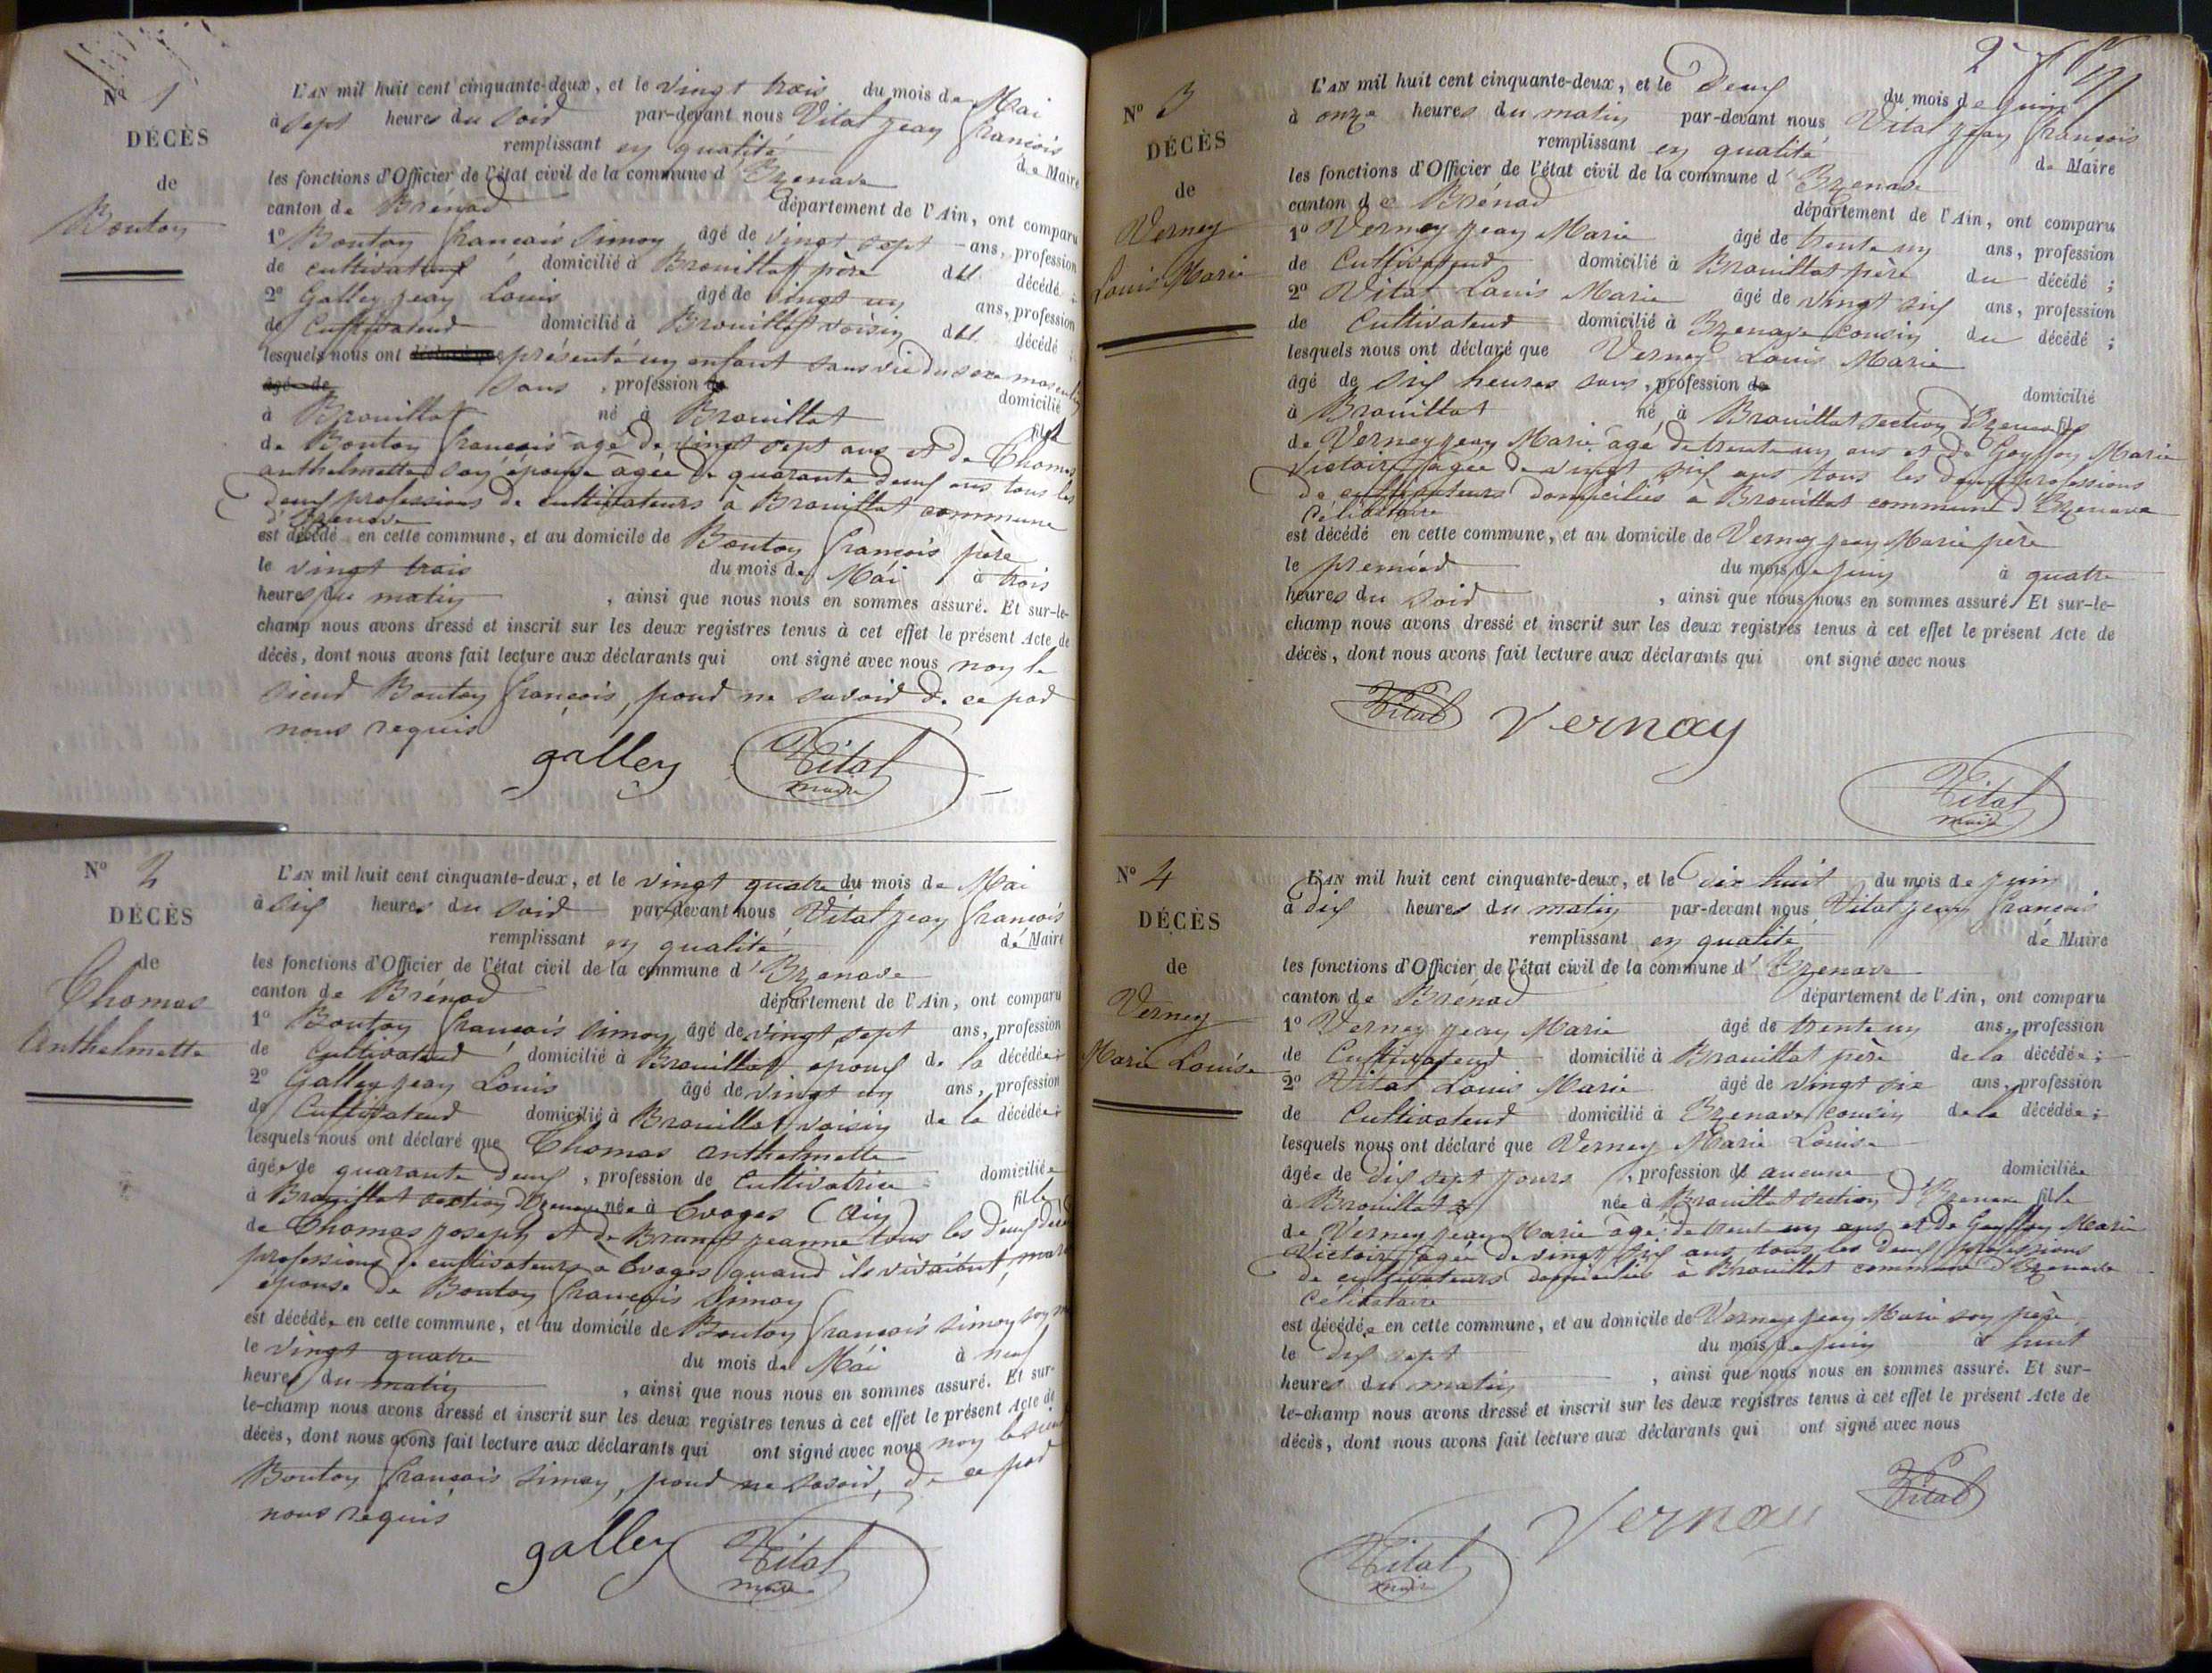 Nº 1
DÉCÈS
de
Bouton
L'AN mil huit cent cinquante-deux, et le vingt trois du mois de Mai
à sept heures du soir par-devant nous Vital jean françois
remplissant en qualité de Maire
les fonctions d'Officier de l'état civil de la commune d'Izenave
canton de Brénod département de l'Ain, ont comparu
1º Bouton françois Simon âgé de vingt sept ans, profession
de cultivateur domicilié à Brouillat père du décédé ;
2º Galley jean Louis âgé de vingt un ans, profession
de Cultivateur domicilié à Brouillat voisin du décédé ;
lesquels nous ont présenté un enfant sans vie du sexe masculin
âgé de sans , profession de domicilié
à Brouillat né à Brouillat fils
de Bouton françois âgé de vingt sept ans et de Thomas
anthelmette son épouse âgée de quarante deux ans tous les
deux professions de cultivateurs à Brouillat commune
d'Izenave
est décédé en cette commune, et au domicile de Bouton françois père
le vingt trois du mois de Mai à trois
heures du matin , ainsi que nous nous en sommes assuré. Et sur-le-
champ nous avons dressé et inscrit sur les deux registres tenus à cet effet le présent Acte de
décès, dont nous avons fait lecture aux déclarants qui ont signé avec nous non le
sieur Bouton françois, pour ne savoir de ce par
nous requis
galley Vital
maire
Nº 2
DÉCÈS
de
Thomas
Anthelmette
L'AN mil huit cent cinquante-deux, et le vingt quatre du mois de Mai
à six heures du soir par-devant nous Vital jean françois
remplissant en qualité de Maire
les fonctions d'Officier de l'état civil de la commune d'Izenave
canton de Brénod département de l'Ain, ont comparu
1º Bouton françois Simon âgé de vingt sept ans, profession
de Cultivateur domicilié à Brouillat epoux de la décédée ;
2º Galley jean Louis âgé de vingt un ans, profession
de Cultivateur domicilié à Brouillat voisin de la décédée ;
lesquels nous ont déclaré que Thomas anthelmette
âgée de quarante deux , profession de Cultivatrice domiciliée
à Brouillat section d'Izenave née à Evoges (Ain) fille
de Thomas joseph et de jeanne tous les deux
professions de cultivateurs à Evoges quand ils vivaient,
epouse de Bouton françois Simon
est décédée en cette commune, et au domicile de Bouton françois simon son
le vingt quatre du mois de Mai à neuf
heures du matin , ainsi que nous nous en sommes assuré. Et sur-
le-champ nous avons dressé et inscrit sur les deux registres tenus à cet effet le présent Acte de
décès, dont nous avons fait lecture aux déclarants qui ont signé avec nous non le sieur
Bouton françois simon, pour ne savoir, de ce par
nous requis
galley Vital
maire
2
Nº 3
DÉCÈS
de
Verney
Louis Marie
L'AN mil huit cent cinquante-deux, et le Deux du mois de juin
à onze heures du matin par-devant nous Vital jean françois
remplissant en qualité de Maire
les fonctions d'Officier de l'état civil de la commune d'Izenave
canton de Brénod département de l'Ain, ont comparu
1º Verney jean Marie âgé de trente un ans, profession
de Cultivateur domicilié à Brouillat père du décédé ;
2º Vital Louis Marie âgé de vingt six ans, profession
de Cultivateur domicilié à Izenave cousin du décédé ;
lesquels nous ont déclaré que Verney Louis Marie
âgé de six heures sans , profession de domicilié
à Brouillat né à Brouillat section d'Izenave fils
de Verney jean Marie âgé de trente un ans et de Marie
Victoire âgée de vingt six ans tous les deux professions
de cultivateurs domiciliés à Brouillat commune d'Izenave
Célibataire
est décédé en cette commune, et au domicile de Verney jean Marie père
le premier du mois de juin à quatre
heures du soir , ainsi que nous nous en sommes assuré. Et sur-le-
champ nous avons dressé et inscrit sur les deux registres tenus à cet effet le présent Acte de
décès, dont nous avons fait lecture aux déclarants qui ont signé avec nous
Vital Vernay
Vital
maire
Nº 4
DÉCÈS
de
Verney
Marie Louise
L'AN mil huit cent cinquante-deux, et le dix huit du mois de juin
à dix heures du matin par-devant nous Vital jean françois
remplissant en qualité de Maire
les fonctions d'Officier de l'état civil de la commune d'Izenave
canton de Brénod département de l'Ain, ont comparu
1º Verney jean Marie âgé de trente un ans, profession
de Cultivateur domicilié à Brouillat père de la décédée ;
2º Vital Louis Marie âgé de vingt six ans, profession
de Cultivateur domicilié à Izenave cousin de la décédée ;
lesquels nous ont déclaré que Verney Marie Louise
âgée de dix sept jours , profession de aucune domiciliée
à Brouillat née à Brouillat section d'Izenave fille
de Verney jean Marie âgé de trent un ans et de Marie
Victoire âgée de vingt six ans, tous les deux professions
de cultivateurs domiciliés à Brouillat commune d'Izenave
Célibataire
est décédée en cette commune, et au domicile de Verney jean Marie son père
le dix sept du mois de juin à huit
heures du matin , ainsi que nous nous en sommes assuré. Et sur-
le-champ nous avons dressé et inscrit sur les deux registres tenus à cet effet le présent Acte de
décès, dont nous avons fait lecture aux déclarants qui ont signé avec nous
Vital
Vernay
Vital
maire